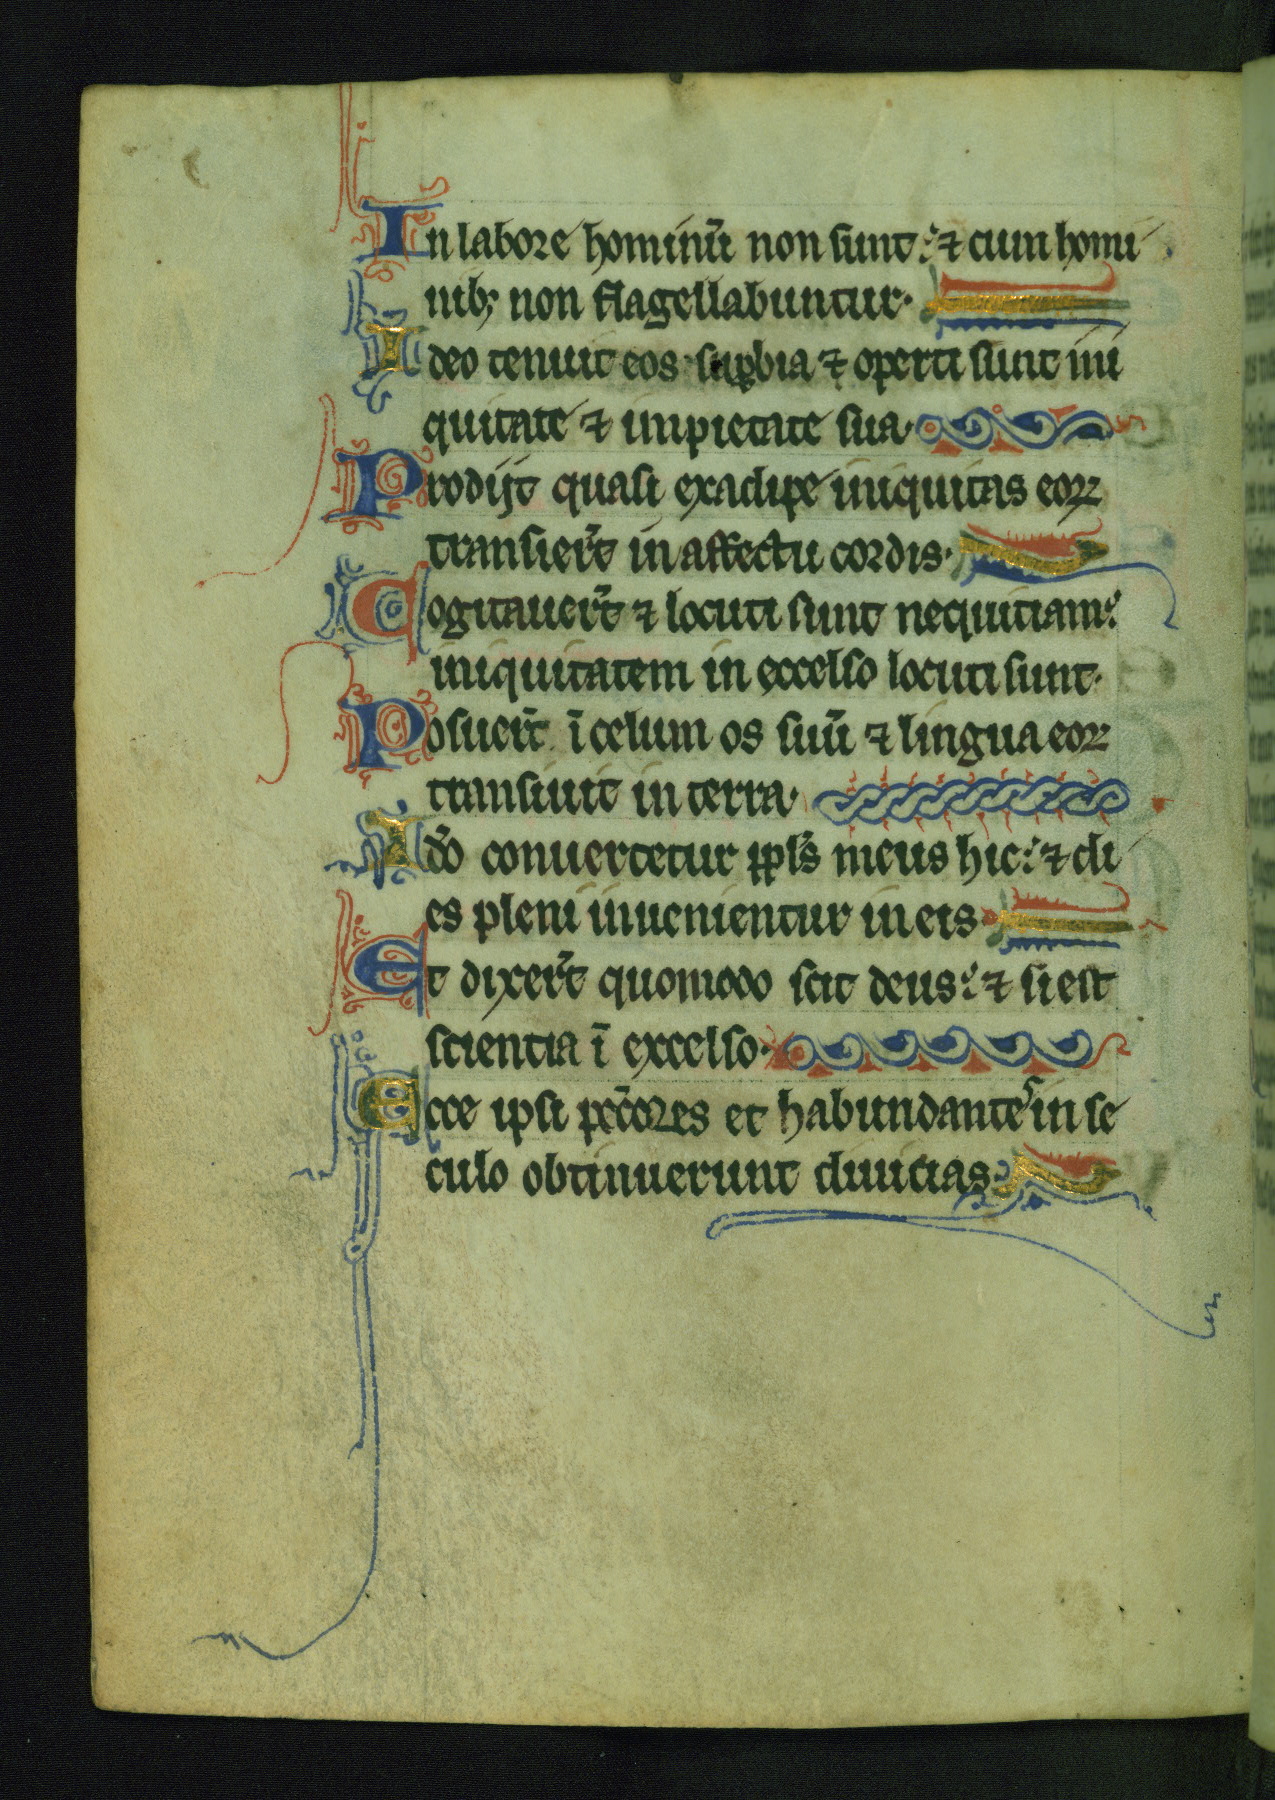 In labore hominū non sunt: ⁊ cum homi
nibꝫ non flagellabuntur·
Ideo tenuit eos suꝑbia ⁊ operti sunt ini
quitate ⁊ impietate sua·
Prodijt quasi exadipe iniquitas eoꝝ
transierūt in affectu cordis·
Cogitauerūt ⁊ locuti sunt nequitiam:
iniquitatem in excelso locuti sunt·
Posuerūt ī celum os suū ⁊ lingua eoꝝ
transiuit in terra·
Ido̅ conuertetur ppl̅s meus hic: ⁊ di
es pleni inuenientur in eis·
Et dixerūt quomodo scit deus: ⁊ si est
scientia ī excelso·
Ecce ipsi pc̄cores et habundantes in se
culo obtinuerunt diuicias·